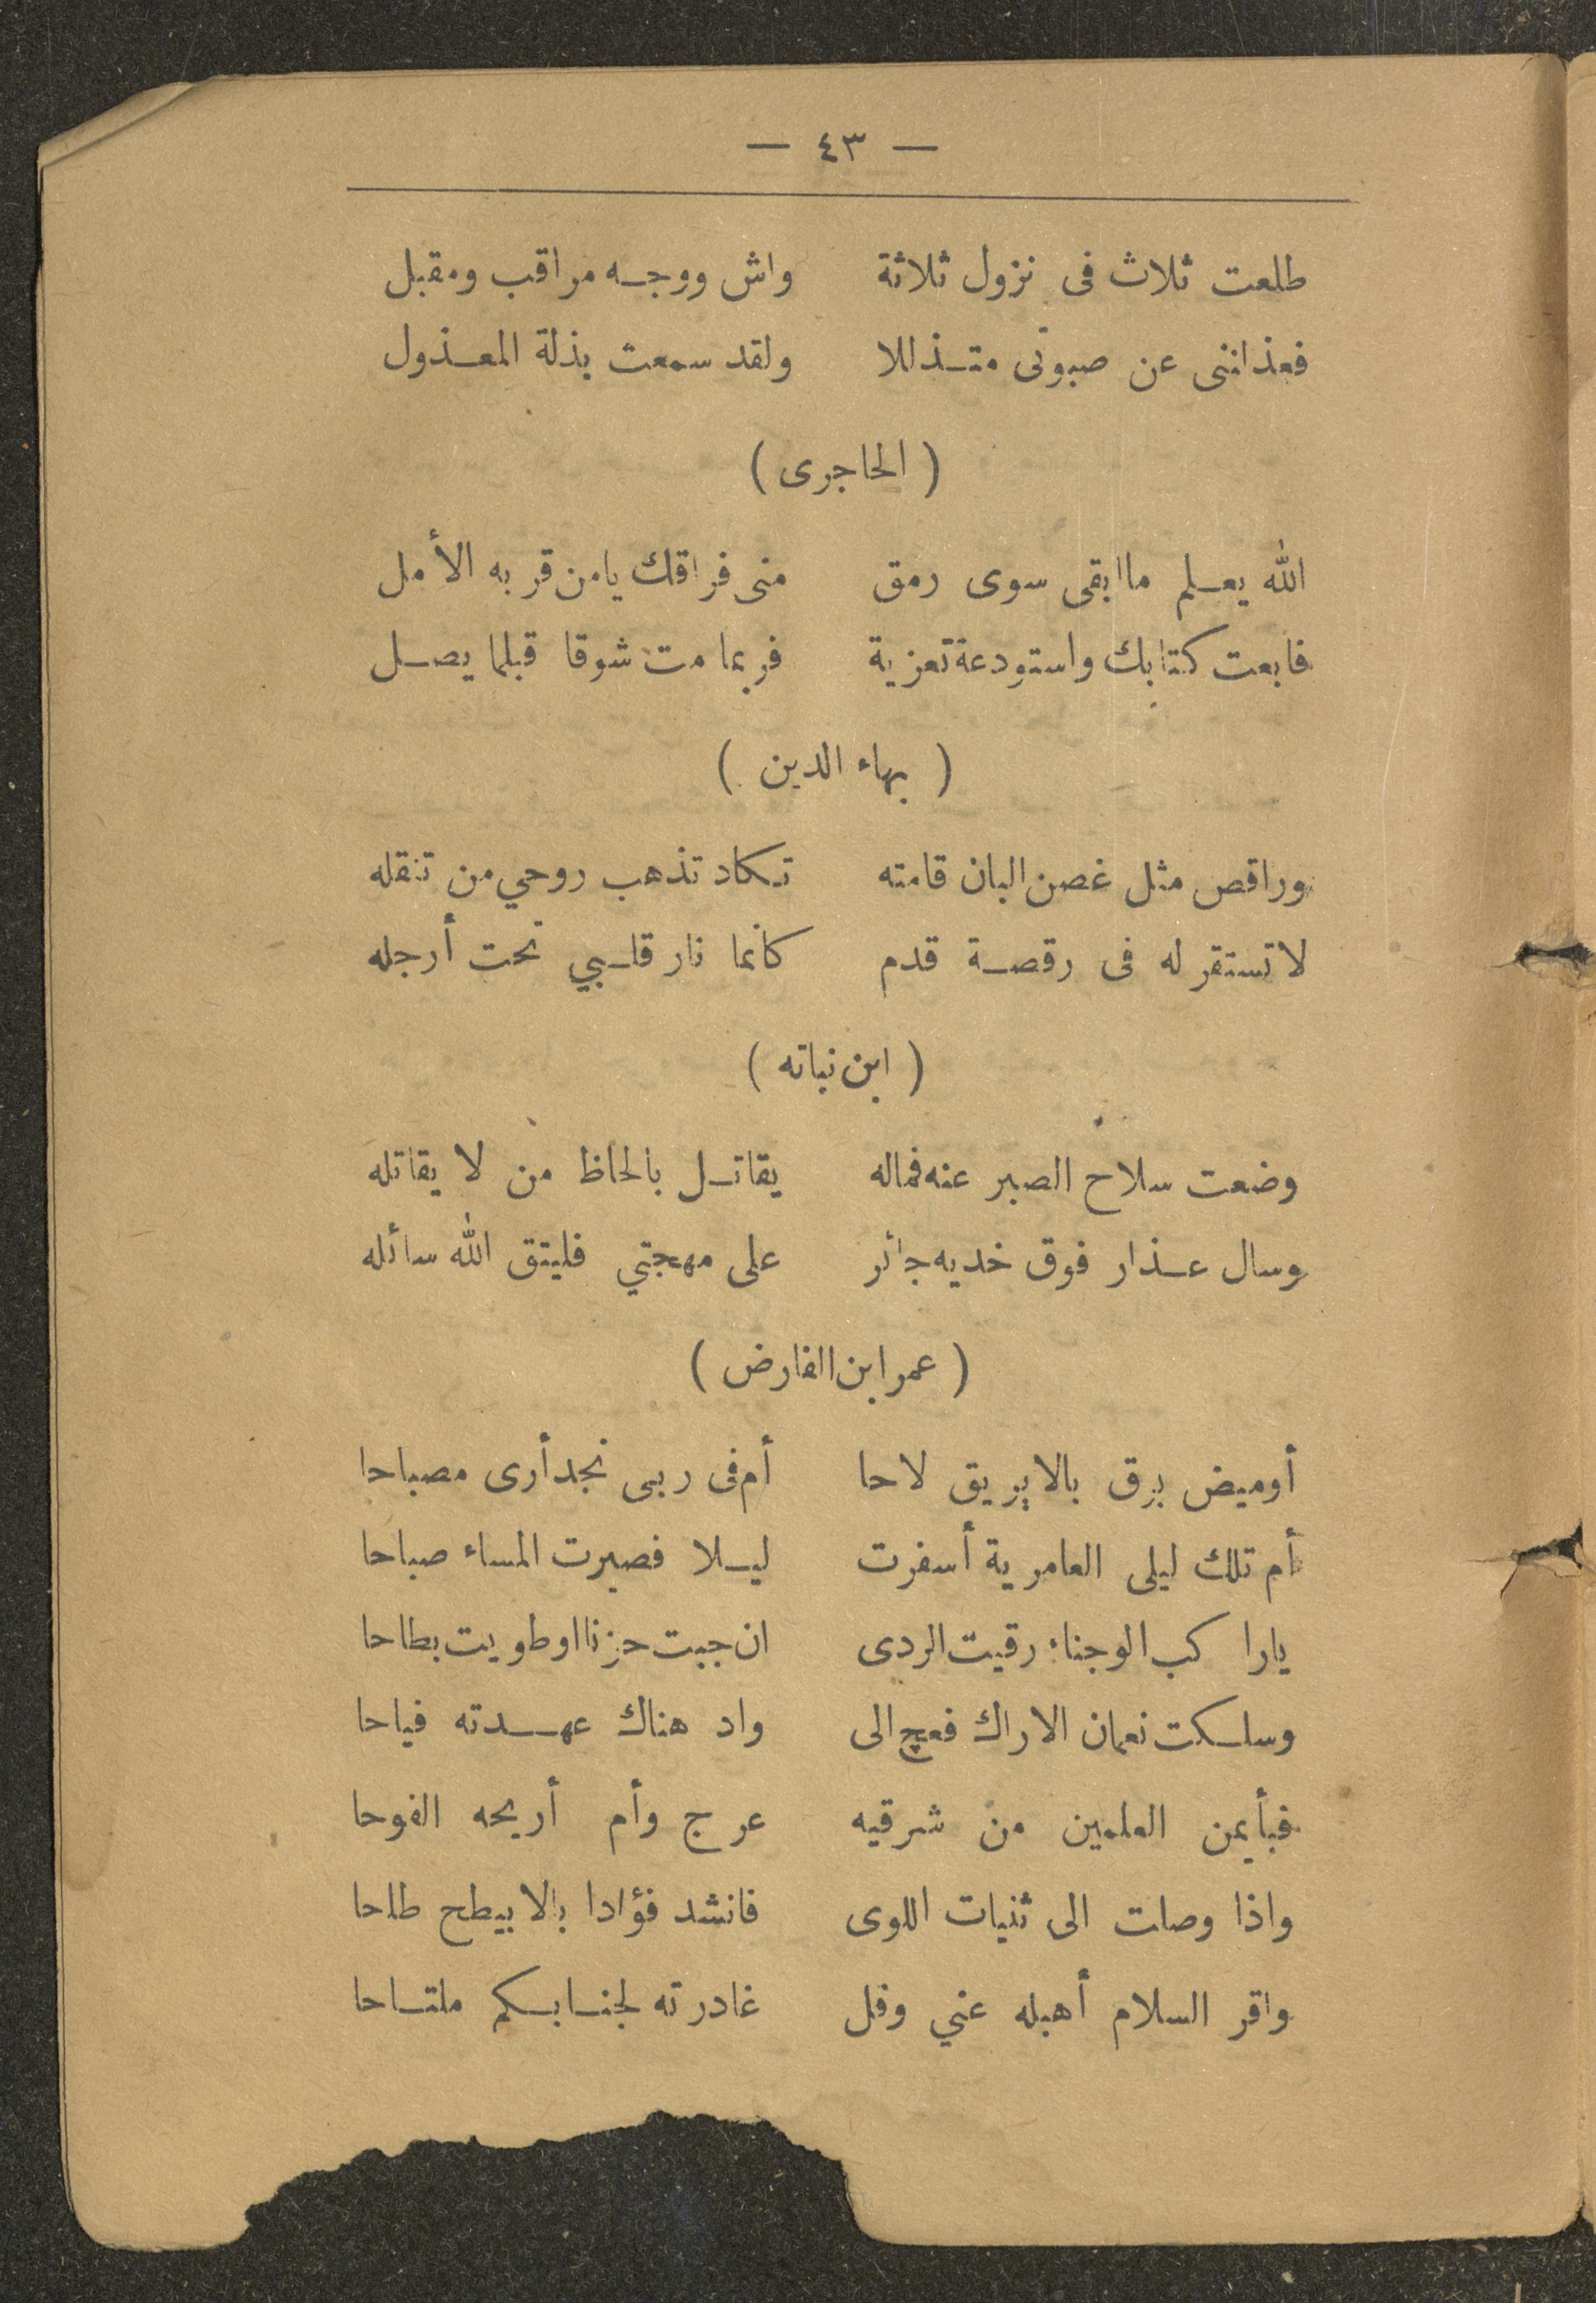 — ٤٣ —
طلعت ثلاث فى نزول ثلاثة واش ووجه مراقب ومقبل
فعذاننى عن صبوتى متذللا ولقد سمعت بذلة المعذول
( الحاجرى )
الله يعلم ماابقى سوى رمق منى فراقك يامن قربه الأمل
فابعت كتابك واستودعة تعزية فربما مت شوقا قبلما يصل
( بهاء الدين )
وراقص مثل غصن البان قامته تكاد تذهب روحي من تنقله
لاتستقر له فى رقصة قدم كأنما نار قلبي تحت أرجله
( ابن نباته )
وضعت سلاح الصبر عنه فماله يقاتل بالحاظ من لا يقاتله
وسال عذار فوق خديه جائر على مهجتي فليتق الله سائله
( عمر ابن الفارض )
أوميض برق بالابريق لاحا أم فى ربى نجد أرى مصباحا
أم تلك ليلى العامرية أسفرت ليلا فصيرت المساء صباحا
يارا كب الوجناء رقيت الردى ان جبت حزنا اوطويت بطاحا
وسلكت نعمان الاراك فعج الى واد هناك عهدته فياحا
فبأيمن العلمين من شرقيه عرج وأم أريحه الفوحا
واذا وصلت الى ثنيات اللوى فانشد فؤادا بالابيطح طاحا
واقر السلام أهيله عني وقل غادرته لجنابكم ملتاحا